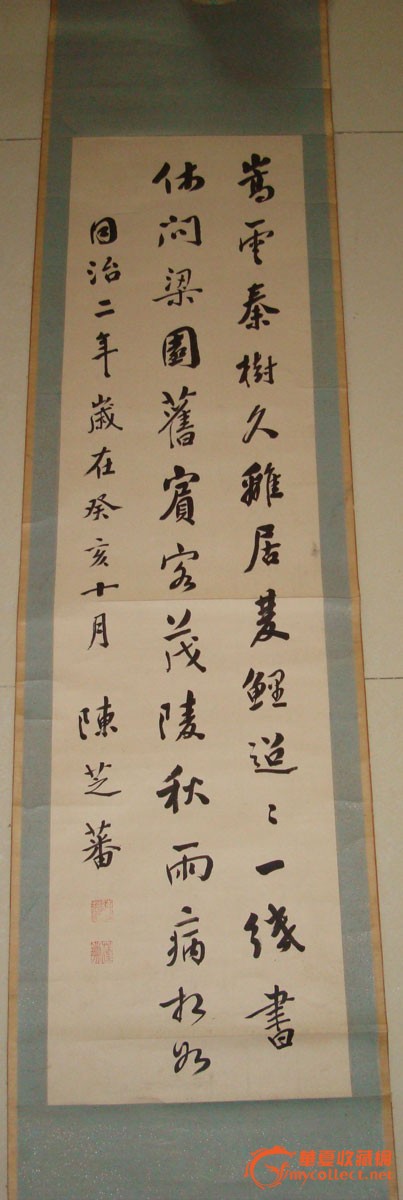 嵩雲秦樹久離居雙鯉迢〻一紙書
休問梁園舊賓客茂陵秋雨病相如
同治二年歲在癸亥十月 陳芝蕃
華夏收藏網
mycollect.net